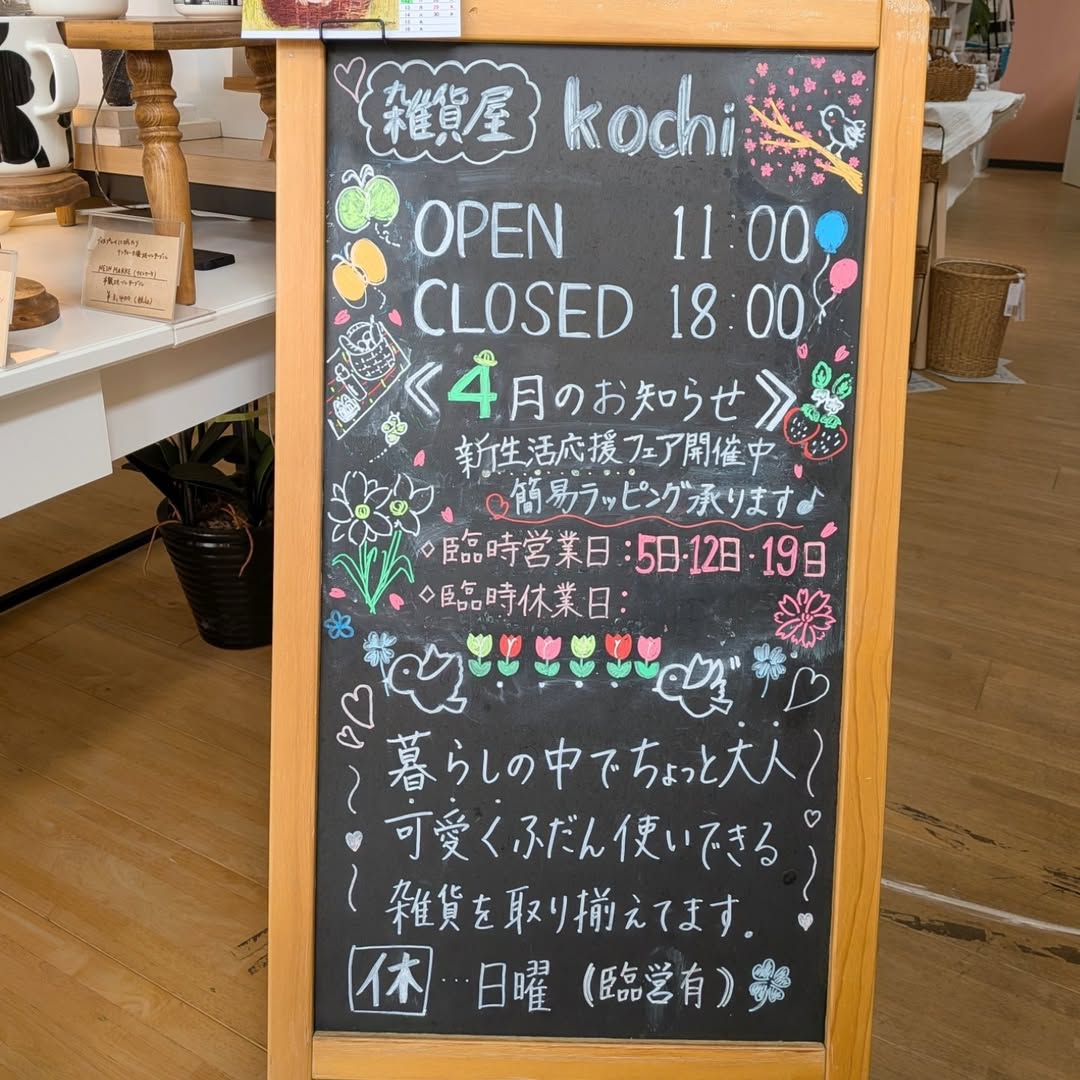 雑貨屋 kochi
OPEN 11:00
CLOSED 18:00
《4月のお知らせ》
新生活応援フェア開催中
簡易ラッピング承ります♪
◇臨時営業日:5日・12日・19日
◇臨時休業日:
暮らしの中でちょっと大人
可愛くふだん使いできる
雑貨を取り揃えてます。
休…日曜(臨営有)